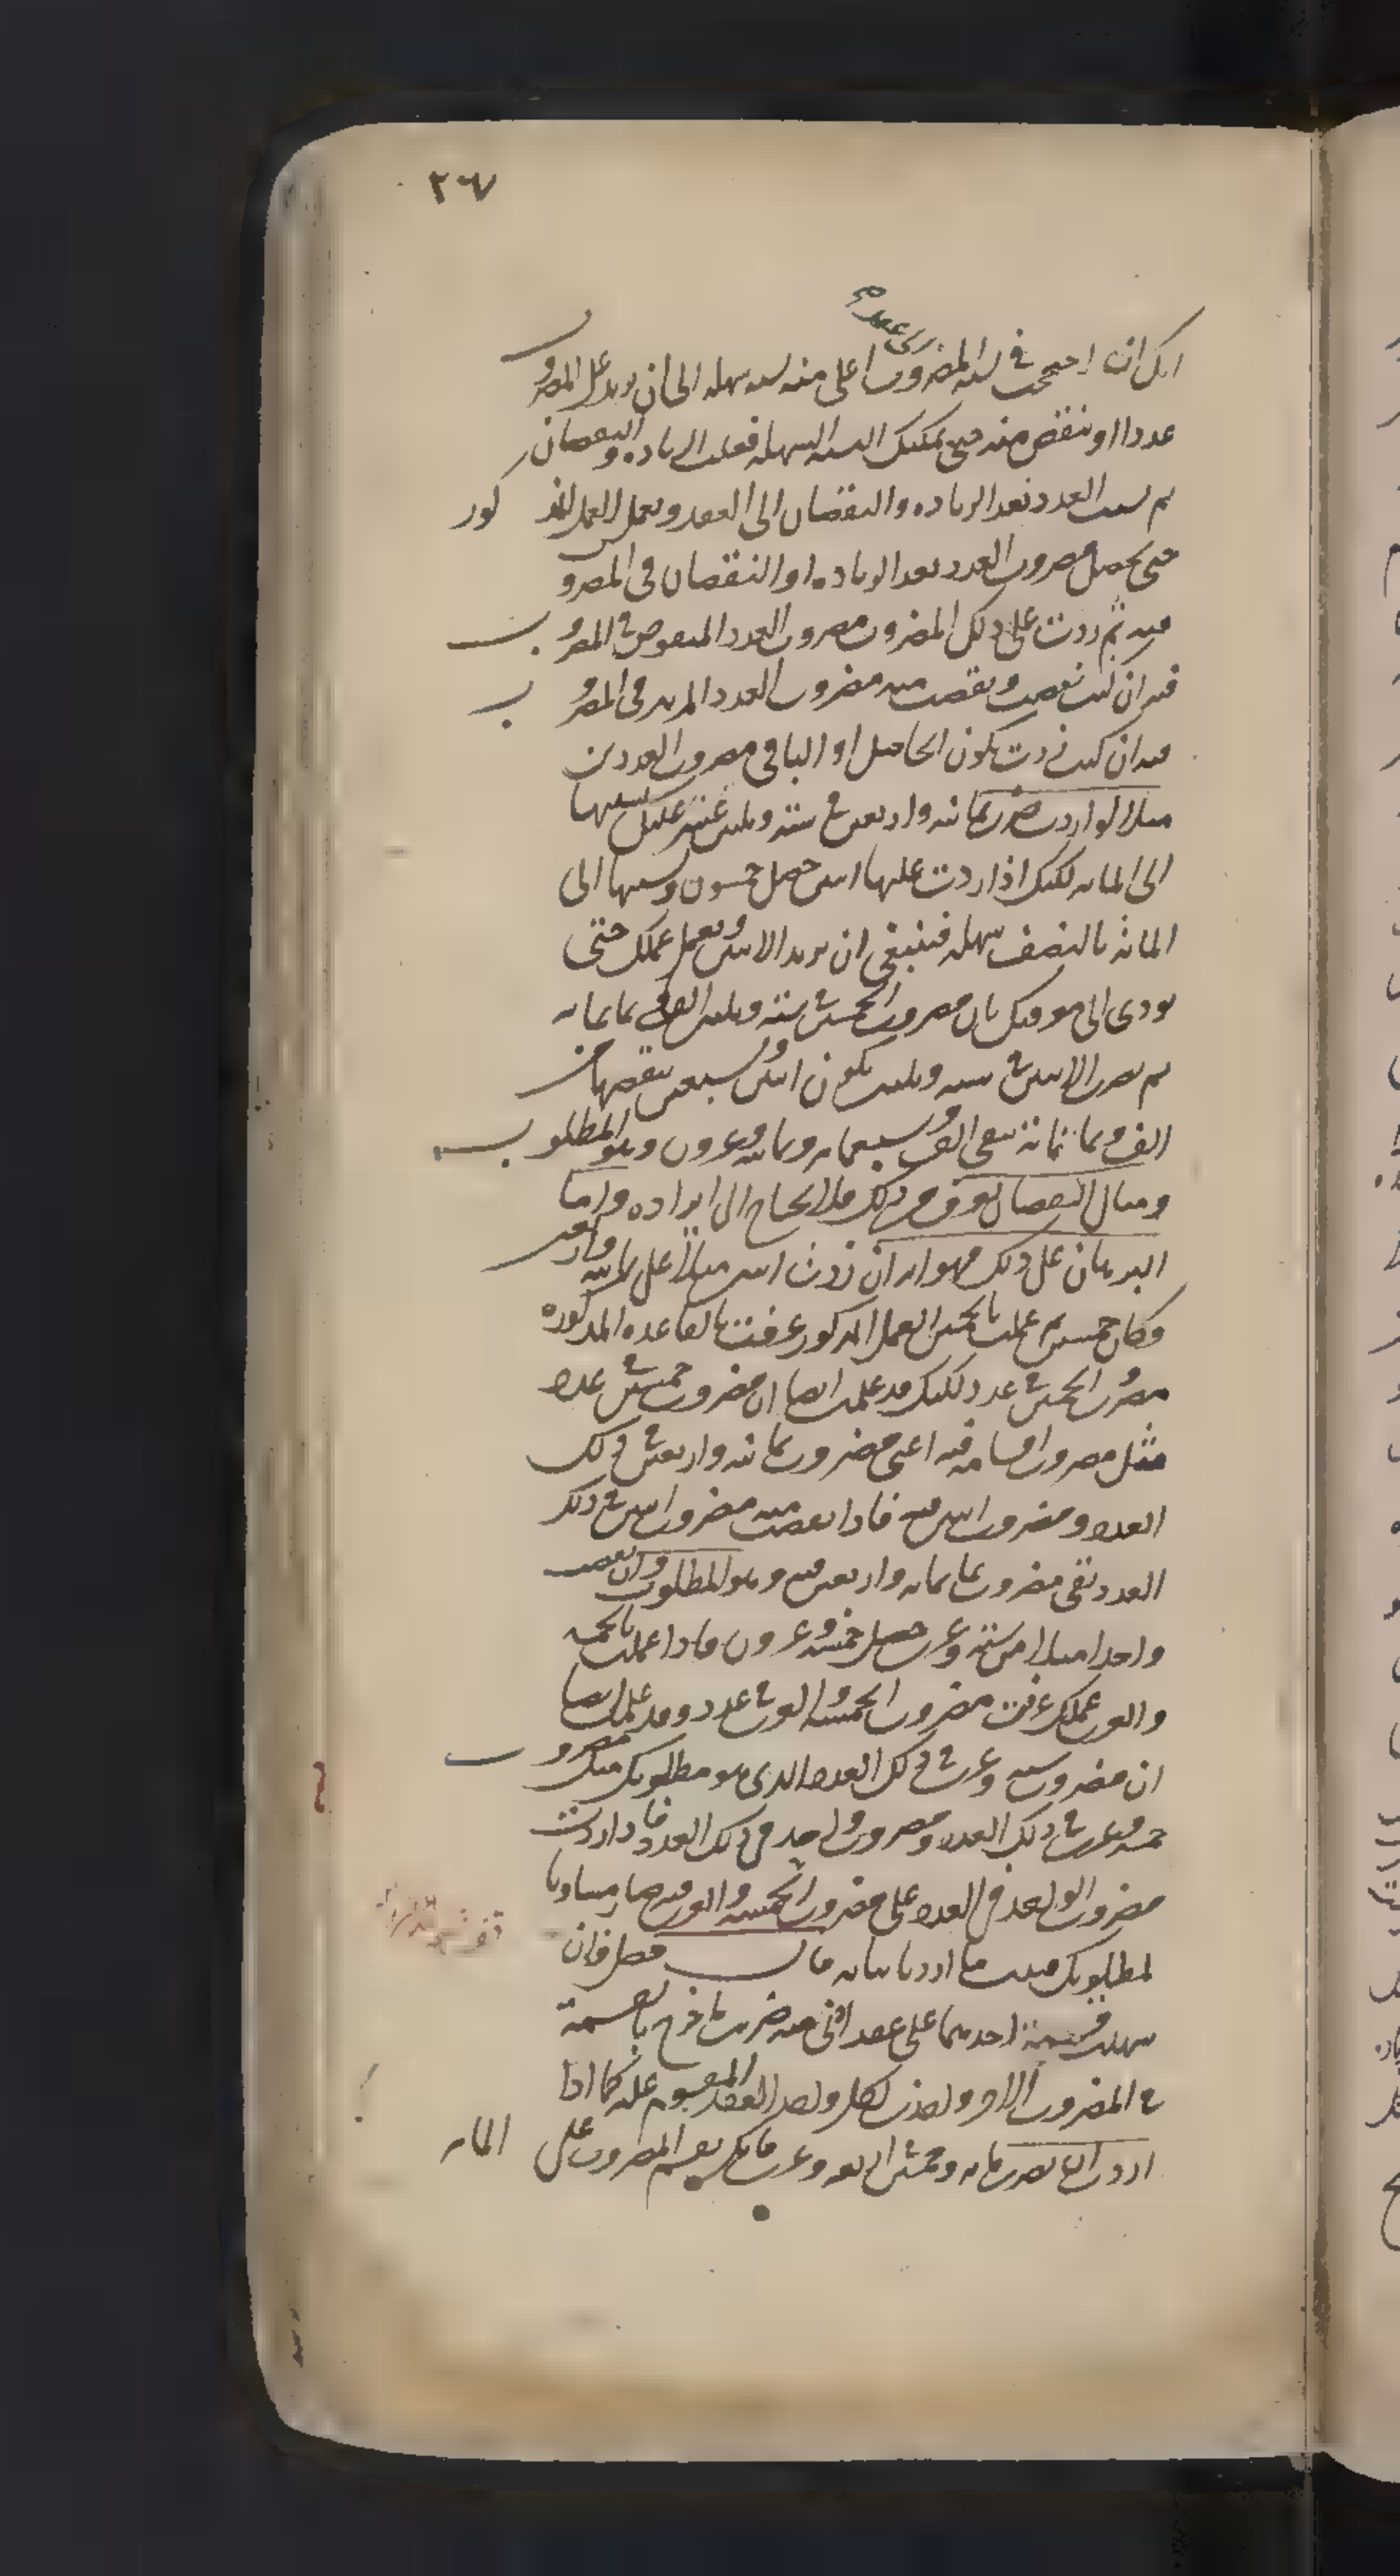 ٢٦٧
انك ان احتجت في نسبة المضروب الى عقد اعلى منه نسبة سهلة الى ان يزيد على المضروب
عددا او تنقص منه حتى يمكنك النسبة السهلة فعلت الزيادة والنقصان
ثم نسبت العدد بعد الزيادة والنقصان الى العقد وتعمل العمل المذكور
حتى يحصل مضروب العدد بعد الزيادة او النقصان في المضروب
فيه ثم زدت على ذلك المضروب مضروب العدد المنقوص في المضروب
فيه ان كنت نقصت ونقصت منه مضروب العدد المزيد في المضروب
فيه ان كنت زدت يكون الحاصل او الباقي مضروب العددين
مثلا لو اردت ضرب ثمانية واربعين في ستة وثلثين عسر عليك نسبتها
الى المائة لكنك اذا زدت عليها اثنين حصل خمسون ونسبتها الى
المائة بالنصف سهلة فينبغي ان يزيد الاثنين وتعمل عملك حتى
يودي الى معرفتك بان مضروب الخمسين في ستة وثلثين الف وثمانمائة
ثم تضرب الاثنين في ستة وثلثين يكون اثنين وسبعين تنقصها من
الف وثمانمائة تبقى الف وسبعمائة وثمانية وعشرون وهو المطلوب
ومثال النقصان يعرف من ذلك فلا يحتاج الى ايراده واما
البرهان على ذلك فهو انه ان زدت اثنين مثلا على ثمانية واربعين
فكان خمسين ثم عملت بالخمسين العمل المذكور عرفت بالقاعدة المذكورة
مضروب الخمسين في عدد لكنك قد علمت ايضا ان مضروب خمسين في عدد
مثل مضروب اقسامه فيه اعني مضروب ثمانية واربعين في ذلك
العدد ومضروب اثنين فيه فاذا نقصت منه مضروب اثنين في ذلك
العدد بقي مضروب ثمانية واربعين فيه وهو المطلوب وان نقصت
واحدا مثلا من ستة وعشرين حصل خمسة وعشرون فاذا عملت بالخمسة
والعشرين عملك عرفت مضروب الخمسة والعشرين في عدد وقد علمت ايضا
ان مضروب ستة وعشرين في ذلك العدد الذي هو مطلوبك مثل مضروب
خمسة وعشرين في ذلك العدد ومضروب واحد في ذلك العدد فاذا زدت
مضروب الواحد في العدد على مضروب الخمسة والعشرين فيه صار مساويا
لمطلوبك فثبت ما اردنا بيانه قال فصل فان
سهلت قسمة احدهما على عقد ادنى منه ضربت ما خرج بالقسمة
في المضروب الاخر واخذت لكل واحد العقد المقسوم عليه كما اذا
اردت ان تضرب مائة وخمسين في اربعة وعشرين فانك تقسم المضروب على المائة